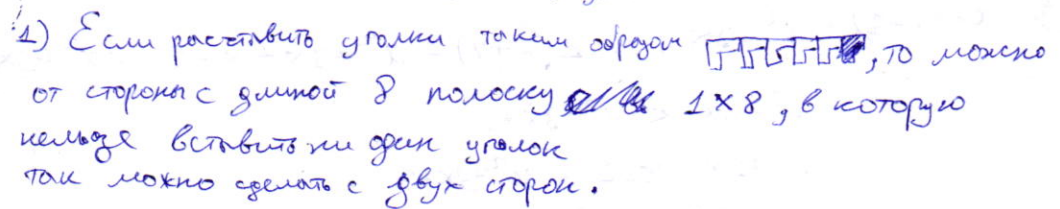 1) Если расставить уголки таким образом , то можно
от стороны с длиной 8 полоску 1×8, в которую
нельзя вставить ни один уголок
так можно сделать с двух сторон.